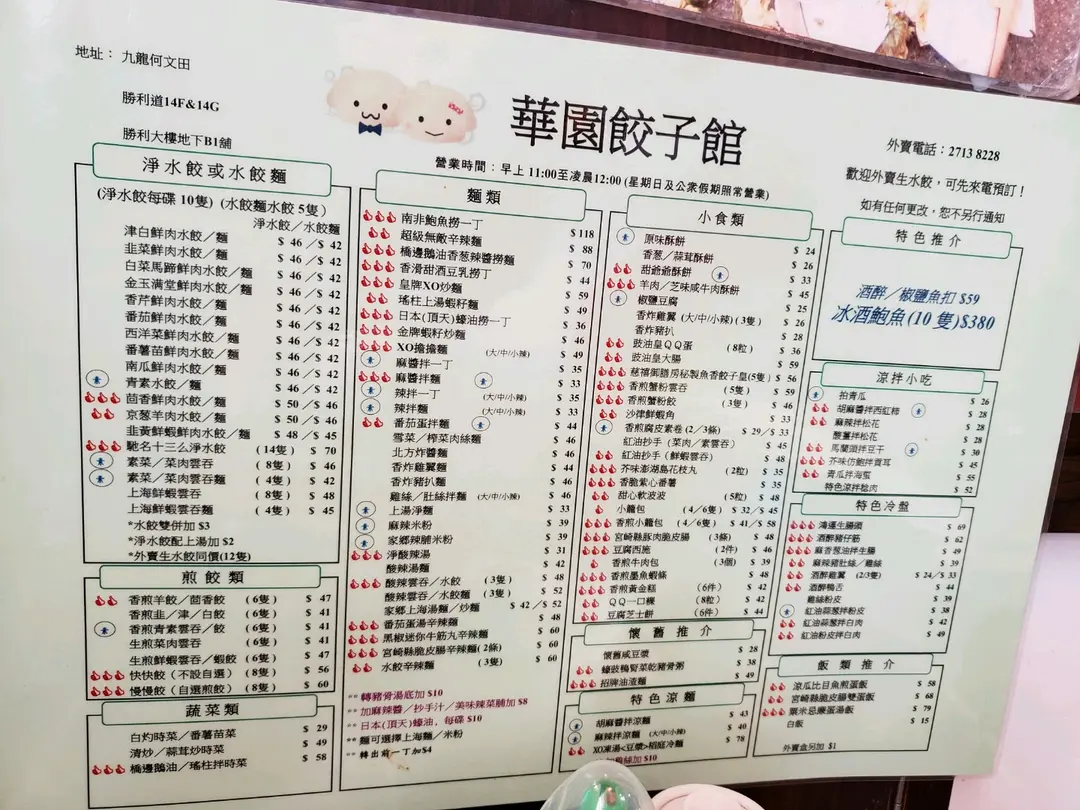 地址： 九龍何文田
勝利道14F&14G
勝利大樓地下B1舖
華園餃子館
營業時間：早上 11:00至凌晨12:00 (星期日及公衆假期照常營業)
外賣電話：2713 8228
歡迎外賣生水餃，可先來電預訂！
如有任何更改，恕不另行通知
淨水餃或水餃麵
(淨水餃每碟 10隻) (水餃麵水餃 5隻)
淨水餃／水餃麵
津白鮮肉水餃／麵 $ 46 ／$ 42
韭菜鮮肉水餃／麵 $ 46 ／$ 42
白菜馬蹄鮮肉水餃／麵 $ 46 ／$ 42
金玉滿堂鮮肉水餃／麵 $ 46 ／$ 42
香芹鮮肉水餃／麵 $ 46 ／$ 42
番茄鮮肉水餃／麵 $ 46 ／$ 42
西洋菜鮮肉水餃／麵 $ 46 ／$ 42
番薯苗鮮肉水餃／麵 $ 46 ／$ 42
南瓜鮮肉水餃／麵 $ 46 ／$ 42
素 青素水餃／麵 $ 46 ／$ 42
茴香鮮肉水餃／麵 $ 50 ／$ 46
京葱羊肉水餃／麵 $ 50 ／$ 46
韭黃鮮蝦鮮肉水餃／麵 $ 48 ／$ 45
馳名十三么淨水餃 (14隻) $ 70
素 素菜／菜肉雲吞 (8隻) $ 46
素 素菜／菜肉雲吞麵 (4隻) $ 42
上海鮮蝦雲吞 (8隻) $ 48
上海鮮蝦雲吞麵 (4隻) $ 45
*水餃雙併加 $3
*淨水餃配上湯加 $2
*外賣生水餃同價(12隻)
煎餃類
香煎羊餃／茴香餃 (6隻) $ 47
香煎韭／津／白餃 (6隻) $ 41
素 香煎青素雲吞／餃 (6隻) $ 41
生煎菜肉雲吞 (6隻) $ 41
生煎鮮蝦雲吞／蝦餃 (6隻) $ 47
快快餃（不設自選） (8隻) $ 56
慢慢餃（自選煎餃） (8隻) $ 60
蔬菜類
白灼時菜／番薯苗菜 $ 29
清炒／蒜茸炒時菜 $ 49
橋邊鵝油／瑤柱拌時菜 $ 58
麵類
南非鮑魚撈一丁 $118
超級無敵辛辣麵 $ 88
橋邊鵝油香葱辣醬撈麵 $ 70
香滑甜酒豆乳撈丁 $ 44
皇牌XO炒麵 $ 59
瑤柱上湯蝦籽麵 $ 49
日本(頂天)蠔油撈一丁 $ 36
金牌蝦籽炒麵 $ 46
XO擔擔麵 (大/中/小辣) $ 49
素 麻醬拌一丁 $ 35
麻醬拌麵 素 $ 33
素 辣拌一丁 (大/中/小辣) $ 35
素 辣拌麵 (大/中/小辣) $ 33
番茄蛋拌麵 素 $ 44
雪菜／榨菜肉絲麵 $ 46
北方炸醬麵 $ 46
香炸雞翼麵 $ 44
香炸豬扒麵 $ 46
雞絲／肚絲拌麵 (大/中/小辣) $ 46
素 上湯淨麵 $ 33
素 麻辣米粉 $ 39
素 家鄉辣腩米粉 $ 39
淨酸辣湯 $ 31
酸辣湯麵 $ 42
酸辣雲吞／水餃 (3隻) $ 48
酸辣雲吞／水餃麵 (3隻) $ 52
家鄉上海湯麵／炒麵 $ 42 ／$ 52
番茄蛋湯辛辣麵 $ 48
黑椒迷你牛筋丸辛辣麵 $ 60
宮崎縣脆皮腸辛辣麵(2條) $ 60
水餃辛辣麵 (3隻) $ 60
** 轉豬骨湯底加 $10
**加麻辣醬／抄手汁／美味辣菜脯加 $8
**日本(頂天)蠔油，每碟 $10
**麵可選擇上海麵／米粉
**轉出前一丁加$4
小食類
素 原味酥餅 $ 24
香葱／蒜茸酥餅 $ 26
甜爺爺酥餅 素 $ 33
羊肉／芝味咸牛肉酥餅 $ 45
素 椒鹽豆腐 $ 25
香炸雞翼 (大/中/小辣) (3隻) $ 26
香炸豬扒 $ 28
豉油皇ＱＱ蛋 (8粒) $ 36
豉油皇大腸 $ 59
慈禧御膳房秘製魚香餃子皇(5隻) $ 56
香煎蟹粉雲吞 (5隻) $ 59
香煎蟹粉餃 (3隻) $ 46
沙律鮮蝦角 $ 33
素 香煎腐皮素卷 (2/3條) $ 29／$ 33
紅油抄手（菜肉／素雲吞） $ 45
紅油抄手（鮮蝦雲吞） $ 48
芥味澎湖島花枝丸 (2粒) $ 35
香脆紫心番薯 $ 35
甜心軟波波 (5粒) $ 48
小籠包 (4／6隻) $ 32／$ 45
香煎小籠包 (4／6隻) $ 41／$ 58
宮崎縣豚肉脆皮腸 (3條) $ 48
豆腐西施 (2件) $ 46
香煎牛肉包 (3個) $ 39
香煎墨魚蝦條 $ 48
香煎黃金糕 (6件) $ 42
ＱＱ一口糉 (8粒) $ 42
豆腐芝士餅 (6件) $ 44
懷舊推介
懷舊咸豆漿 $ 28
蠔豉鴨腎菜乾豬骨粥 $ 38
招牌油渣麵 $ 49
特色涼麵
素 胡麻醬拌涼麵 $ 43
素 麻辣拌涼麵 (大/中/小辣) $ 40
XO凍湯<豆漿>稻庭冷麵 $ 78
加 $10
特色推介
酒醉／椒鹽魚扣 $59
冰酒鮑魚(10 隻)$380
涼拌小吃
素 拍青瓜 $ 26
胡麻醬拌西紅柿 素 $ 28
麻辣拌松花 $ 28
酸薑拌松花 $ 28
馬蘭頭拌豆干 素 $ 30
芥味仿鮑拌貢耳 $ 45
青瓜拌海蜇 $ 55
特色涼拌豬肉 $ 52
特色冷盤
鴻運生腸頭 $ 69
酒醉豬仔筋 $ 62
麻香葱油拌生腸 $ 49
麻辣豬肚絲／雞絲 $ 39
酒醉雞翼 (2/3隻) $ 24／$ 33
酒醉鴨舌 $ 44
雞絲粉皮 $ 39
素 紅油蒜葱拌粉皮 $ 38
紅油蒜葱拌白肉 $ 42
紅油粉皮拌白肉 $ 49
飯類推介
涼瓜比目魚煎蛋飯 $ 58
宮崎縣脆皮腸雙蛋飯 $ 68
粟米忌廉蛋湯飯 $ 79
白飯 $ 15
外賣盒另加 $1